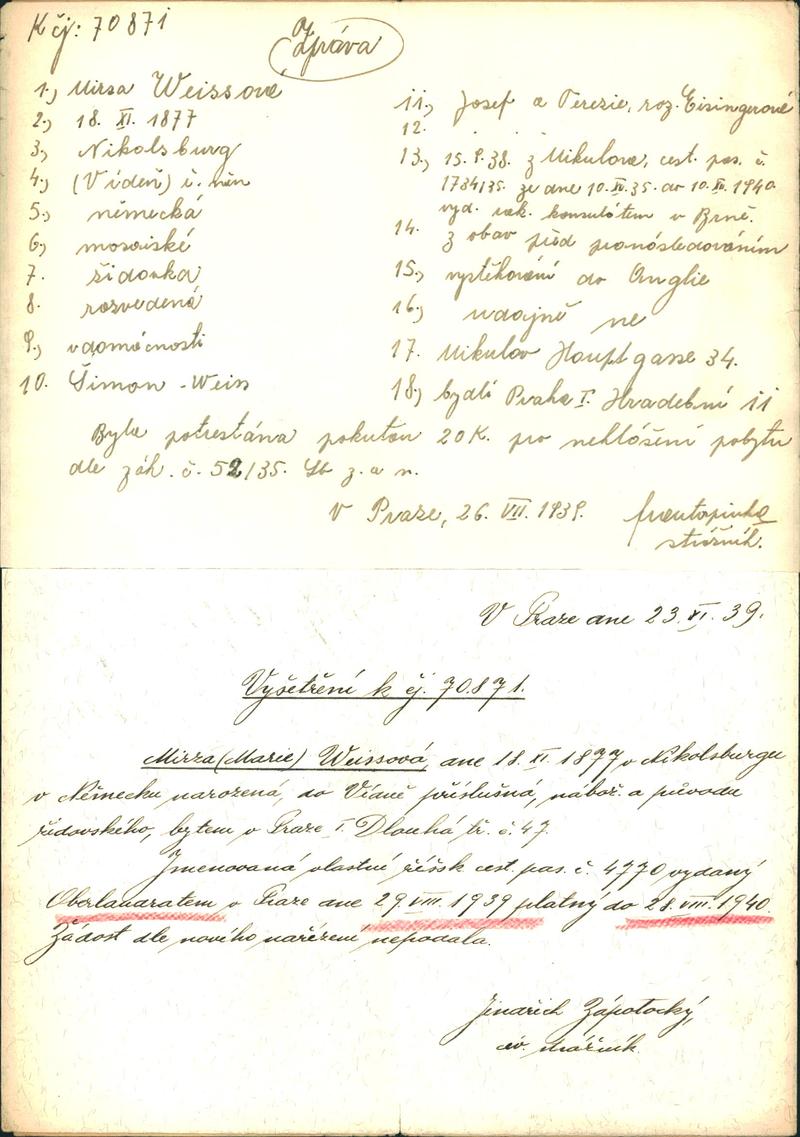 K čj: 70871
Zpráva
1.) Mirsa Weissová
2.) 18. XI. 1877
3.) Nikolsburg
4.) (Vídeň) č. něm
5.) německá
6.) mosaiské
7. židovka
8. rozvedená
9.) v domácnosti
10. Šimon - Weiss
11.) Josef a Terezie, roz. Eisingerové
12. . . .
13.) 15.9.38. z Mikulova, cest. pas. č.
1734/35. ze dne 10.IV.35. do 10.IV.1940
vyd. rak. konsulátem v Brně.
14. z obav před pronásledováním
15.) vystěhování do Anglie
16.) udajně ne
17. Mikulov Hauptgasse 34.
18.) bydlí Praha I. Hradební 11
Byla potrestána pokutou 20K. pro nehlášení pobytu
dle zák. č. 52/35. Sb z. a n.
V Praze, 26. VII. 1939.
strážník.
V Praze dne 23. XI. 39.
Vyšetření k čj. 70871.
Mirza (Marie) Weissová, dne 18. XI. 1877 v Nikolsburgu
v Německu narozená, do Vídně příslušná, nábož. a původu
židovského, bytem v Praze I. Dlouhá tř. č. 47.
Jmenovaná vlastní říšsk. cest. pas. č. 4770 vydaný
Oberlandratem v Praze dne 29. VIII. 1939 platný do 28. VIII. 1940
Žádost dle nového nařízení nepodala.
Jindřich Zápotocký,
strážník